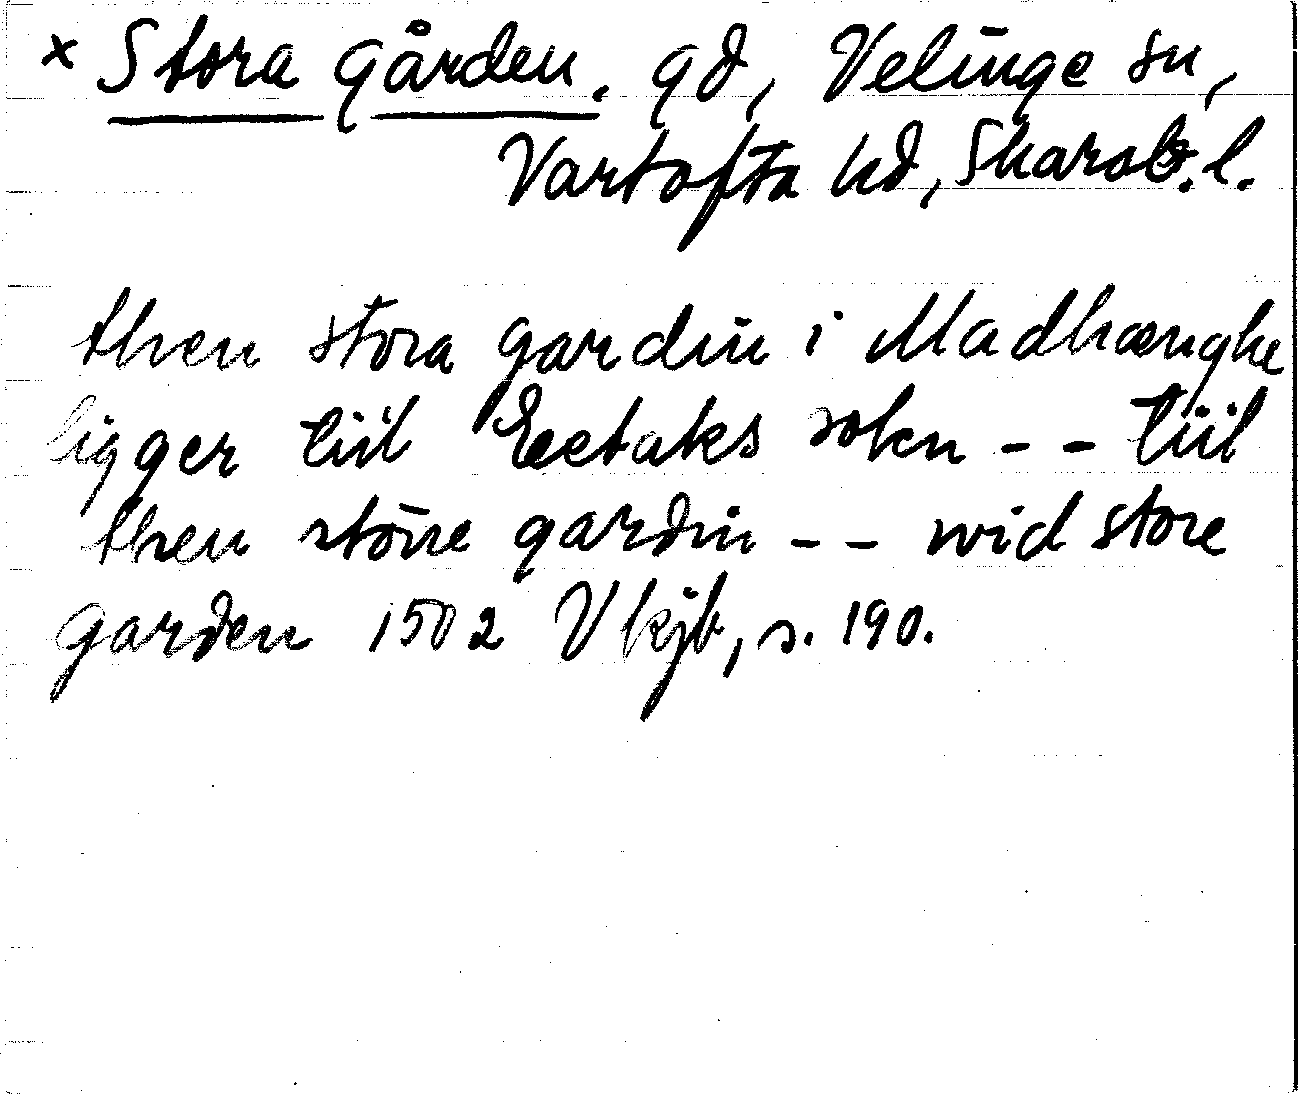 x Stora Gården. gd, Velinge sn,
Vartofta hd, Skarab. l.
then stora gardin i Madhænghe
ligger tiil Eectaks sokn - - tiil
then störe gardin - - wid store
garden 1502 Vkjb, s. 190.